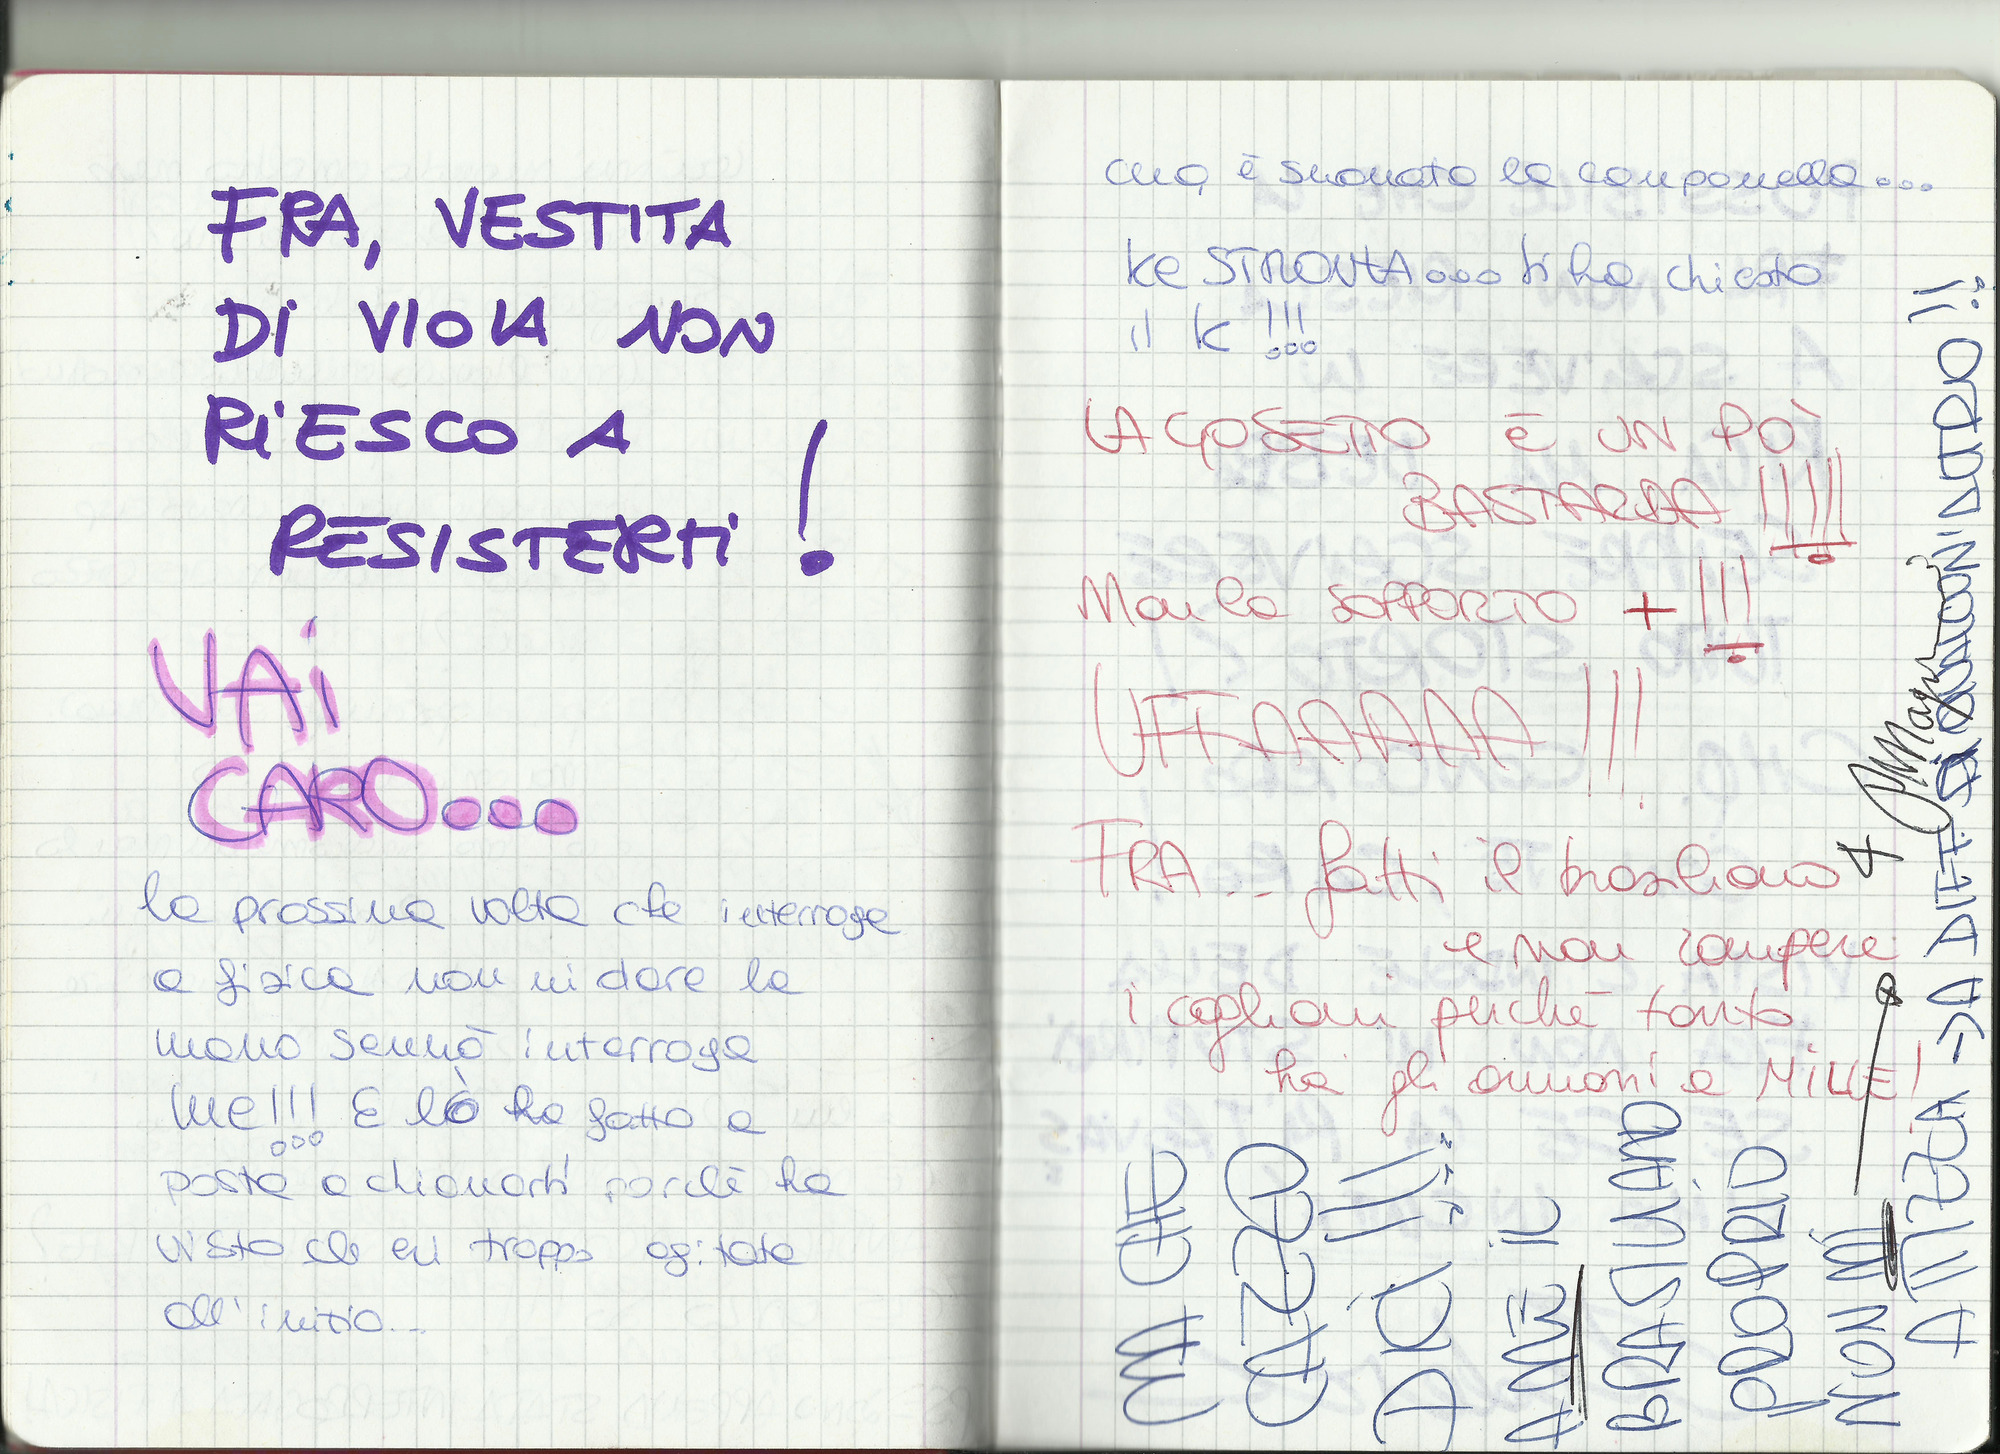 FRA, VESTITA
DI VIOLA NON
RIESCO A
RESISTERTI!
VAI
CARO...
la prossima volta che interroga
a fisica non mi dare la
mano sennò interroga
me!!! E lò ha fatto a
posta a chiamarti perché ha
visto che eri troppo agitata
all'inizio...
è suonata la campanella...
ke STRONZA... ti ha chiesto
il k!!!
LA GOSETTO è UN PÒ
BASTARDA!!!!!
Non la SOPPORTO +!!!
UFFAAAAAA!!!
FRA... fatti il brasiliano
e non rompere
i coglioni perché tanto
hai gli ormoni a MILLE!
MA CHE
CAZZO
DICI!!!
A ME IL
BRASILIANO
PROPRIO
NON MI
ATTIZZA → A DIFF DI QUALCUN'ALTRO!!